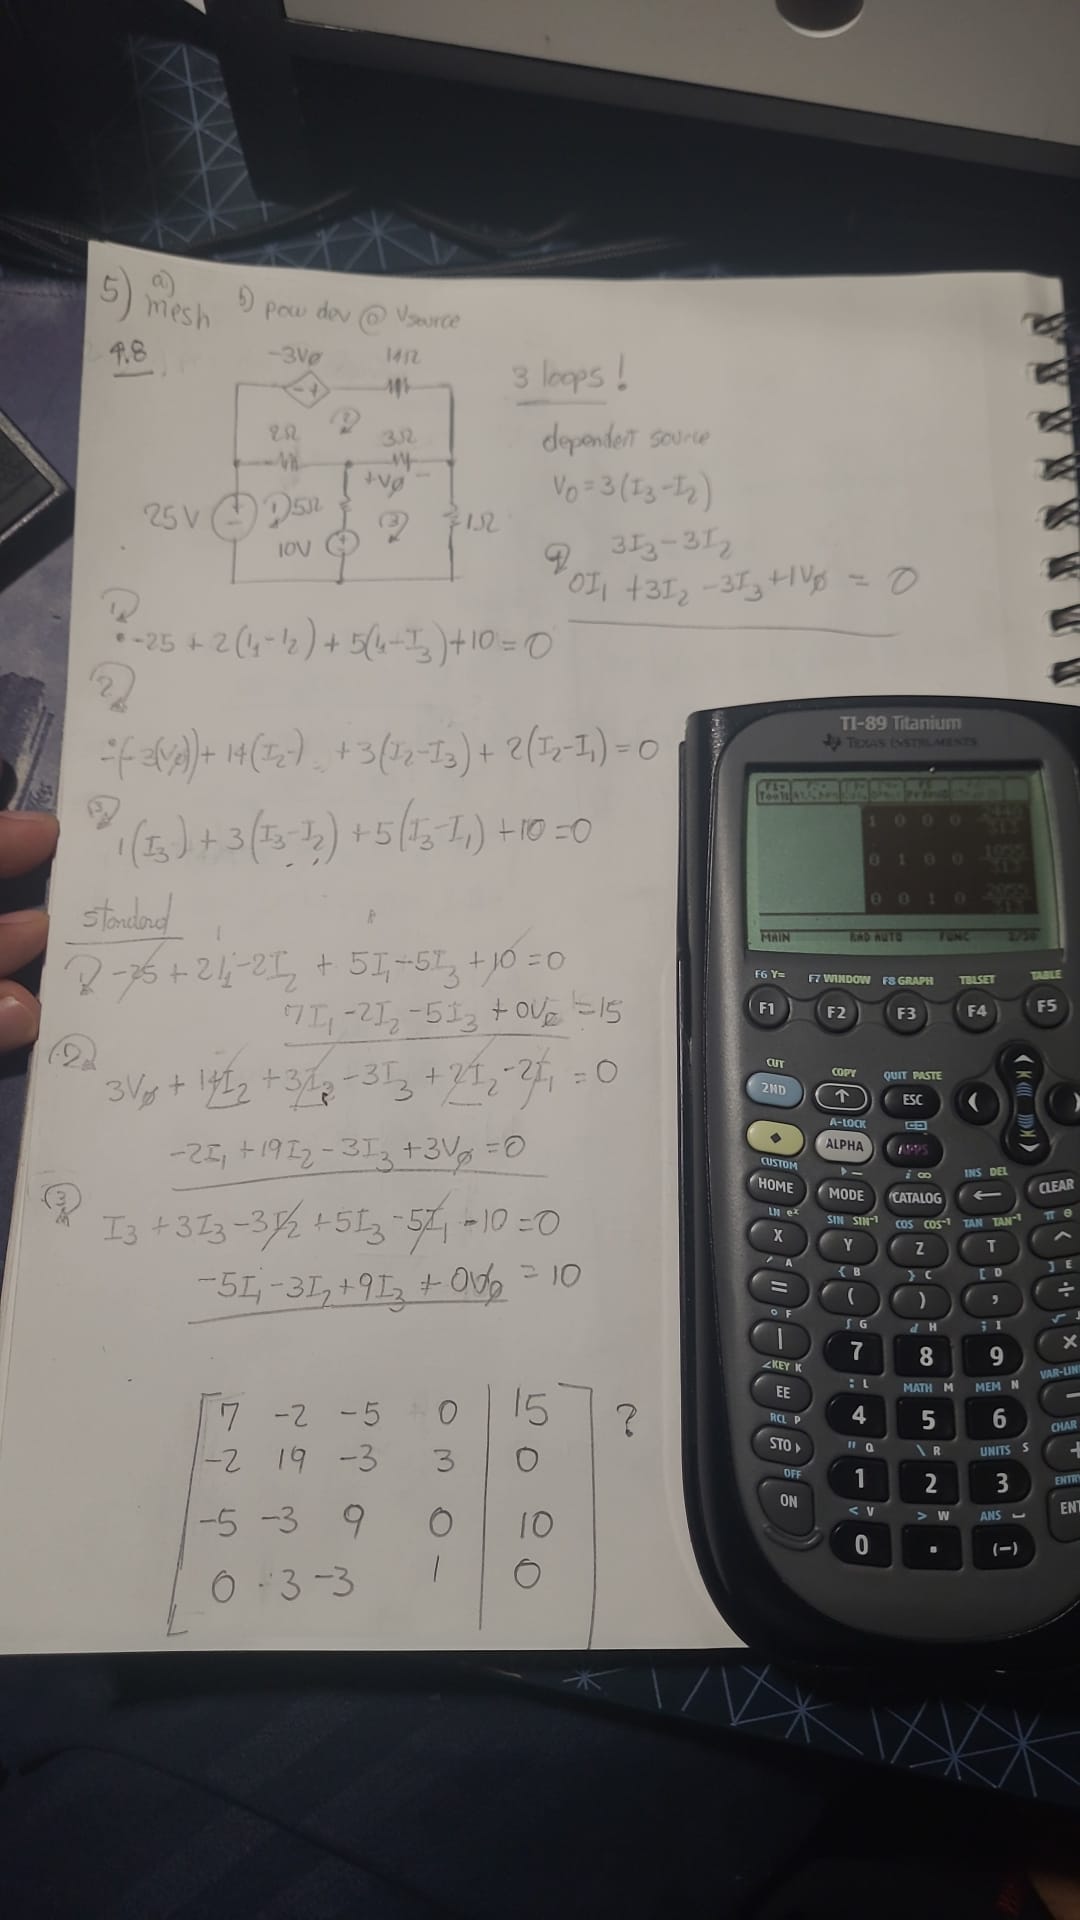 5) a) mesh b) pow dev @ Vsource
4.8
-3Vø 14Ω
2Ω 2 3Ω
+Vø -
25V + - 1 5Ω 3 1Ω
10V
3 loops!
dependent source
Vo = 3(I3-I2)
3I3-3I2
4 0I1 +3I2 -3I3 +1Vø = 0
1
-25 + 2(I1-I2) + 5(I1-I3) +10 = 0
2
-(-3(Vø)) + 14(I2) +3(I2-I3) + 2(I2-I1) = 0
3
1(I3) + 3(I3-I2) + 5(I3-I1) +10 = 0
standard
1 -25 + 2I1-2I2 + 5I1-5I3 +10 = 0
7I1 -2I2 -5I3 + 0Vø = 15
2
3Vø + 14I2 +3I2 -3I3 + 2I2 -2I1 = 0
-2I1 +19I2 - 3I3 +3Vø = 0
3
I3 +3I3 -3I2 +5I3 -5I1 -10 = 0
-5I1 -3I2 +9I3 + 0Vø = 10
7 -2 -5 0 | 15 ?
-2 19 -3 3 | 0
-5 -3 9 0 | 10
0 3 -3 1 | 0
TI-89 Titanium
TEXAS INSTRUMENTS
1 0 0 0
0 1 0 0 1055/313
0 0 1 0 2055/313
MAIN RAD AUTO FUNC
F6 Y= F7 WINDOW F8 GRAPH TBLSET TABLE
F1 F2 F3 F4 F5
CUT COPY QUIT PASTE
2ND ↑ ESC
A-LOCK
◆ ALPHA APPS
CUSTOM INS DEL
HOME MODE CATALOG ← CLEAR
LN eˣ SIN SIN⁻¹ COS COS⁻¹ TAN TAN⁻¹ π θ
X Y Z T ^
A { B } C [ D ] E
= ( ) , ÷
° F ∫ G d H ; I √
| 7 8 9 ×
∠KEY K : L MATH M MEM N VAR-LIN
EE 4 5 6 −
RCL P " Q \ R UNITS S CHAR
STO▸ 1 2 3 +
OFF < V > W ANS ENTR
ON 0 . (−) ENT